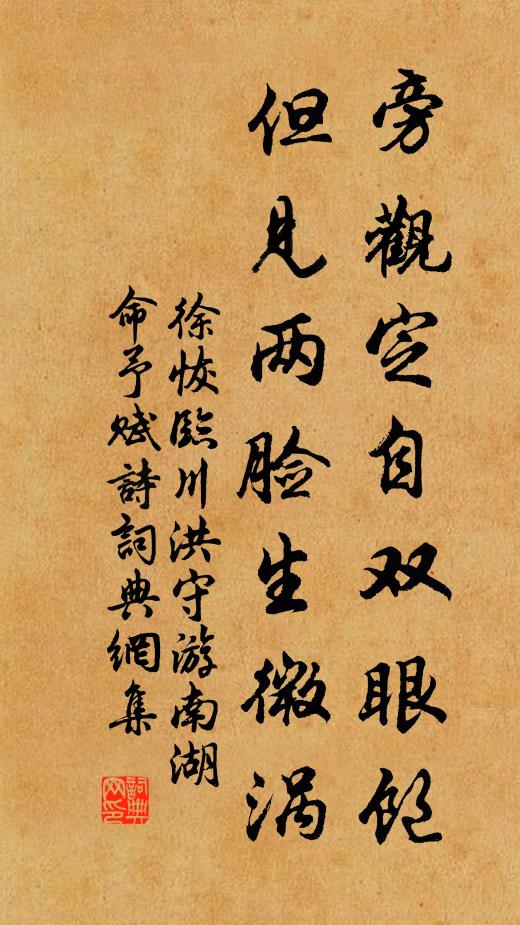 旁觀定自双眼饱
但见两脸生微涡
徐恢臨川洪守游南湖
命予赋詩詞典網集
詞典网印